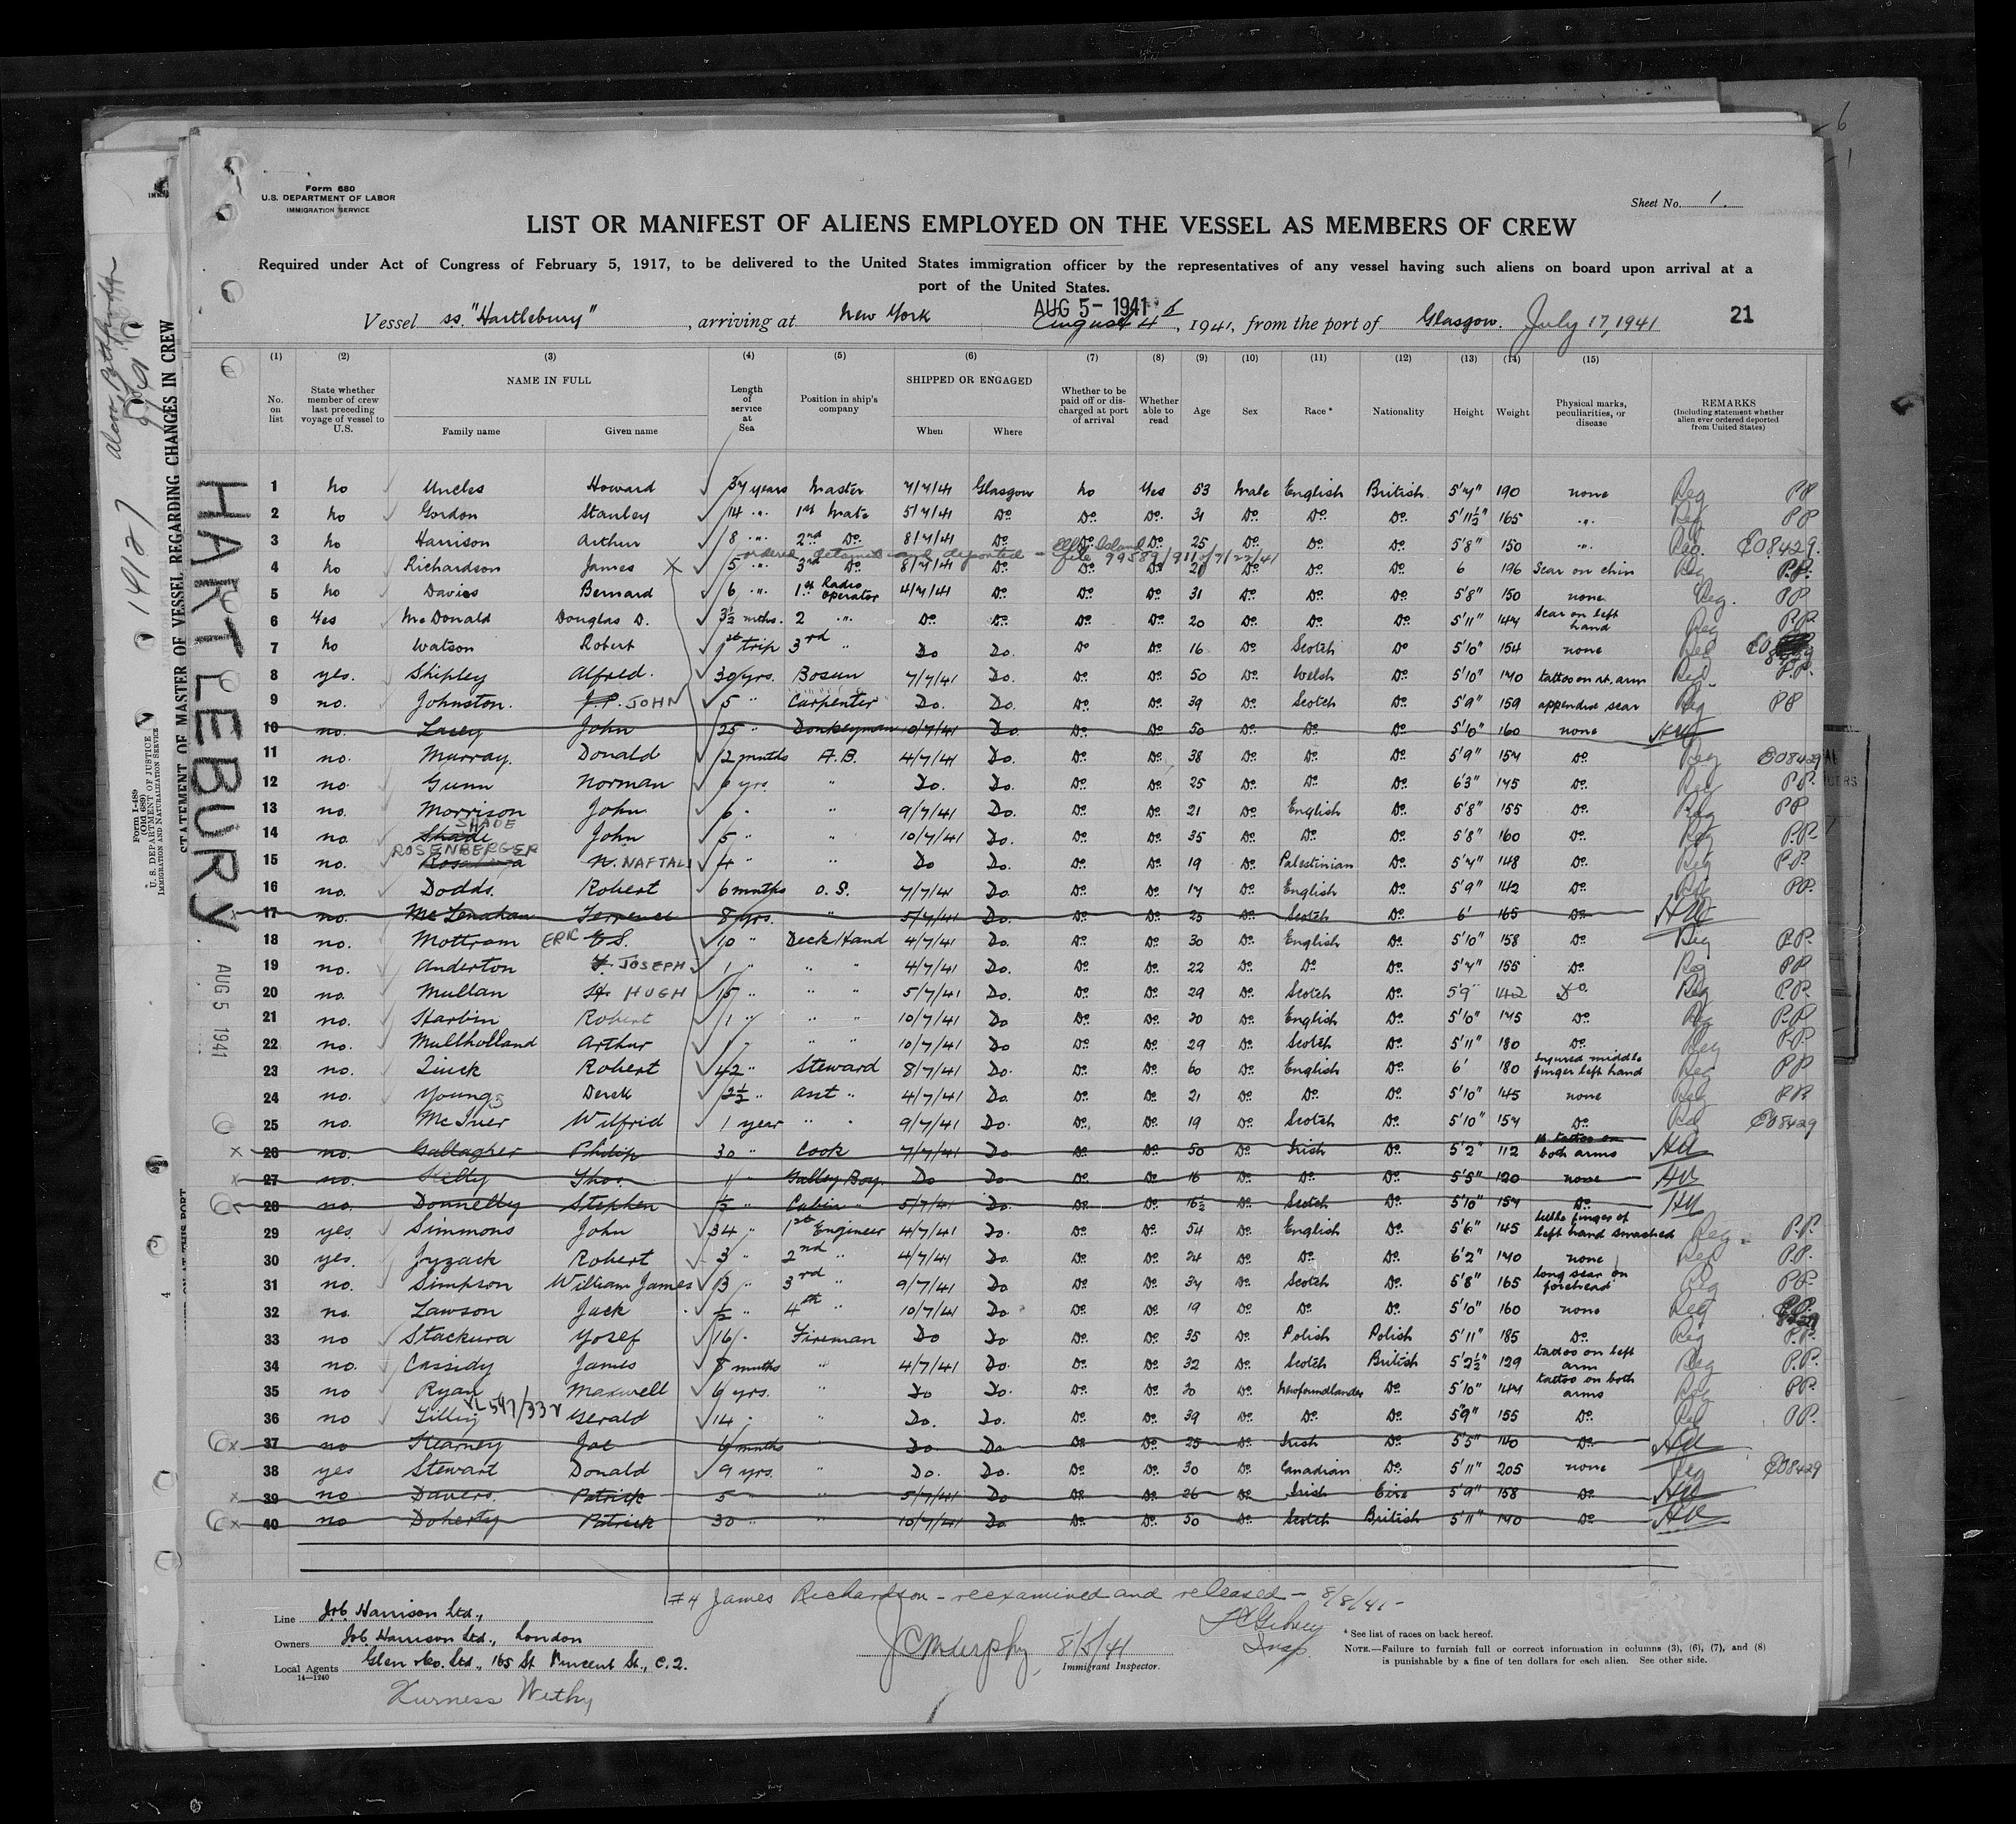 Form 680
U.S. DEPARTMENT OF LABOR
IMMIGRATION SERVICE
Sheet No. 1.
LIST OR MANIFEST OF ALIENS EMPLOYED ON THE VESSEL AS MEMBERS OF CREW
Required under Act of Congress of February 5, 1917, to be delivered to the United States immigration officer by the representatives of any vessel having such aliens on board upon arrival at a
port of the United States.
AUG 5 - 1941
Vessel ss. "Hartlebury", arriving at New York August 4th, 1941, from the port of Glasgow. July 17, 1941
21
(1) (2) (3) (4) (5) (6) (7) (8) (9) (10) (11) (12) (13) (14) (15)
No. on list
State whether member of crew last preceding voyage of vessel to U.S.
NAME IN FULL
Family name Given name
Length of service at Sea
Position in ship's company
SHIPPED OR ENGAGED
When Where
Whether to be paid off or discharged at port of arrival
Whether able to read
Age Sex Race* Nationality Height Weight
Physical marks, peculiarities, or disease
REMARKS
(Including statement whether alien ever ordered deported from United States)
1 no Uncles Howard 37 years Master 7/7/41 Glasgow no Yes 53 Male English British 5'7" 190 none Reg PP
2 no Gordon Stanley 14 " 1st Mate 5/7/41 Do Do Do 31 Do Do Do 5'11½" 165 " Reg PP
3 no Harrison Arthur 8 " 2nd Do 8/7/41 Do Do Do 25 Do Do Do 5'8" 150 " Reg. E08429.
ordered detained and deported - Ellis Island file 99589/911
4 no Richardson James X 5 " 3rd Do 8/7/41 Do Do Do Do Do Do 6 196 Scar on chin Reg P.P.
5 no Davies Bernard 6 " 1st Radio operator 4/7/41 Do Do Do 31 Do Do Do 5'8" 150 none Reg. PP
6 Yes McDonald Douglas D. 3½ mths. 2 " Do Do Do Do 20 Do Do Do 5'11" 147 Scar on left hand Reg P.P.
7 no Watson Robert 1st trip 3rd " Do Do. Do Do 16 Do Scotch Do 5'10" 154 none Reg
8 yes. Shipley Alfred. 30 yrs. Bosun 7/7/41 Do. Do Do 50 Do Welsh Do 5'10" 170 tattoo on rt. arm Reg P.P.
9 no. Johnston. J.P. JOHN 5 " Carpenter Do. Do. Do Do 39 Do Scotch Do 5'9" 159 appendix scar Reg PP
10 no. Lacey John 25 " Donkeyman 10/7/41 Do. Do Do 50 Do Do Do 5'10" 160 none
11 no. Murray. Donald 2 mnths A.B. 4/7/41 Do. Do Do 38 Do Do Do 5'9" 157 Do. Reg E08429
12 no. Gunn Norman 6 yrs " Do. Do. Do Do 25 Do Do Do 6'3" 175 Do. Reg P.P.
13 no. Morrison John 6 " " 9/7/41 Do. Do Do 21 Do English Do 5'8" 155 Do. Reg PP
14 no. Shade SHADE John 5 " " 10/7/41 Do. Do Do 35 Do Do Do 5'8" 160 Do. Reg P.P.
ROSENBERGER
15 no. N. NAFTALI 4 " " Do Do. Do Do 19 Do Palestinian Do 5'7" 148 Do. Reg P.P.
16 no. Dodds. Robert 6 mnths O.S. 7/7/41 Do. Do Do 17 Do English Do 5'9" 142 Do. Reg PP.
17 no. McLenahan Terrence 8 yrs. " 5/7/41 Do. Do Do 25 Do Scotch Do 6' 165 Do
18 no. Mottram ERIC E.S. 10 " Deck Hand 4/7/41 Do. Do Do 30 Do English Do 5'10" 158 Do. Reg P.P.
19 no. Anderton JOSEPH 1 " " " 4/7/41 Do. Do Do 22 Do Do Do 5'7" 155 Do. Reg PP
20 no. Mullan H. HUGH 15 " " " 5/7/41 Do. Do Do 29 Do Scotch Do 5'9" 142 Do. Reg P.P.
21 no. Harbin Robert 1 " " " 10/7/41 Do Do Do 20 Do English Do 5'10" 175 Do. Reg P.P.
22 no. Mullholland Arthur 1 " " " 10/7/41 Do Do Do 29 Do Scotch Do 5'11" 180 Do. Reg P.P.
23 no. Robert 42 " Steward 8/7/41 Do. Do Do 60 Do English Do 6' 180 Injured middle finger left hand Reg PP
24 no. Youngs Derek 2½ " asst " 4/7/41 Do. Do Do 21 Do Do Do 5'10" 145 none Reg P.P.
25 no. McIver Wilfrid 1 year " " 9/7/41 Do. Do Do 19 Do Scotch Do 5'10" 157 Do. Reg E08429
26 no. Gallagher Philip 30 " Cook 7/7/41 Do Do Do 50 Do Irish Do 5'2" 112 tattoo on both arms
27 no. Kelly Thos. 1 " Galley Boy. Do Do Do Do 16 Do Do Do 5'5" 120 none
28 no. Donnelly Stephen ½ " Cabin " 5/7/41 Do. Do Do 16½ Do Scotch Do 5'10" 157 Do.
29 yes. Simmons John 34 " 1st Engineer 4/7/41 Do. Do Do 54 Do English Do 5'6" 145 little finger of left hand smashed Reg. P.P.
30 yes. Jyzack Robert 3 " 2nd " 4/7/41 Do. Do Do 24 Do Do Do 6'2" 170 none Reg P.P.
31 no. Simpson William James 13 " 3rd " 9/7/41 Do Do Do 34 Do Scotch Do 5'8" 165 long scar on forehead Reg P.P.
32 no. Lawson Jack ½ " 4th " 10/7/41 Do Do Do 19 Do Do Do 5'10" 160 none Reg P.P.
33 no Stackura Yosef 16 " Fireman Do Do Do Do 35 Do Polish Polish 5'11" 185 Do. Reg P.P.
34 no. Cassidy James 8 mnths " 4/7/41 Do. Do Do 32 Do Scotch British 5'2½" 129 tattoo on left arm Reg P.P.
35 no Ryan Maxwell 6 yrs. " Do Do. Do Do 20 Do Newfoundlander Do 5'10" 147 tattoo on both arms Reg P.P.
36 no Gerald 14 " " Do. Do. Do Do 39 Do Do Do 5'9" 155 Do. Reg PP.
37 no Kearney Joe 6 mnths " Do Do Do Do 25 Do Irish Do 5'5" 140 Do.
38 yes Stewart Donald 9 yrs. " Do. Do. Do Do 30 Do Canadian Do 5'11" 205 none Reg E08429
39 no Davers. Patrick 5 " 5/7/41 Do Do Do 26 Do Irish Eire 5'9" 158 Do
40 no Doherty Patrick 30 " " 10/7/41 Do Do Do 50 Do Scotch British 5'11" 170 Do.
#4 James Richardson - reexamined and released - 8/8/41 -
Line J.&C. Harrison Ltd.,
Owners J.&C. Harrison Ltd., London
Local Agents Glen & Co. Ltd., 165 St Vincent St., C.2.
14—1240
Furness Withy
JC Murphy 8/5/41
Immigrant Inspector.
Insp.
* See list of races on back hereof.
NOTE.—Failure to furnish full or correct information in columns (3), (6), (7), and (8)
is punishable by a fine of ten dollars for each alien. See other side.
HARTLEBURY
AUG 5 1941
STATEMENT OF MASTER OF VESSEL REGARDING CHANGES IN CREW
Form I-489
(Old 689)
U. S. DEPARTMENT OF JUSTICE
IMMIGRATION AND NATURALIZATION SERVICE
14127